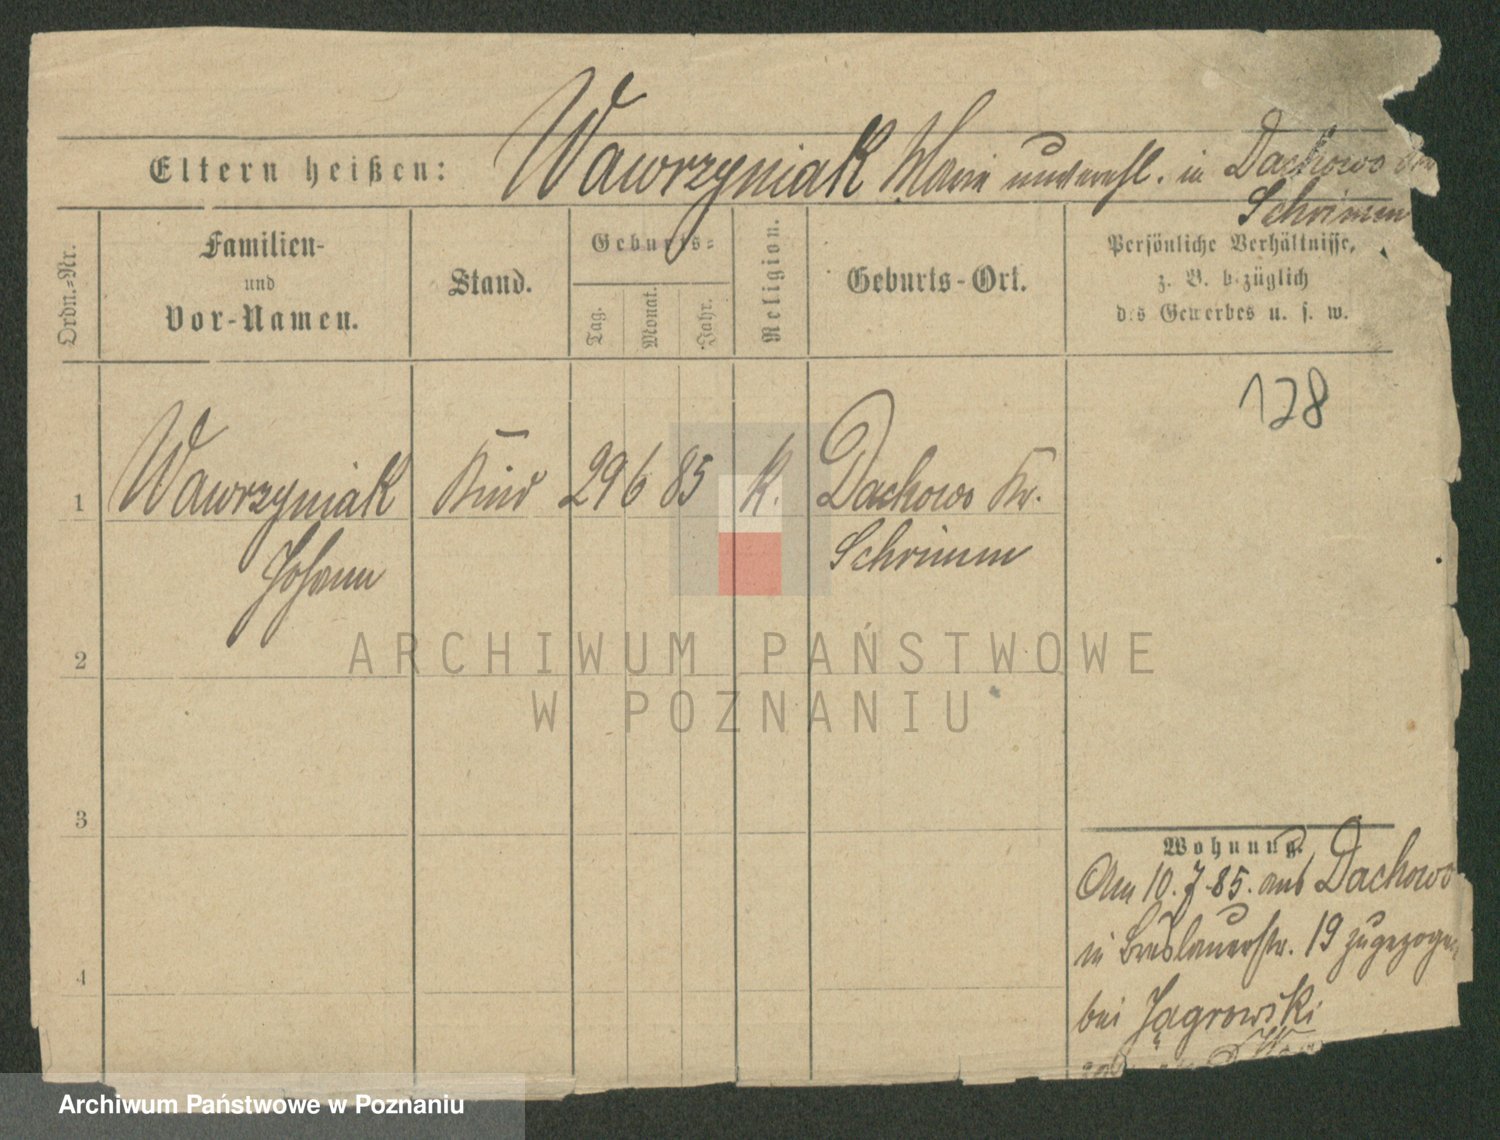 Eltern heißen: Wawrzyniak Marie unverehl. in Dachowo
Schrimm
Ordn.=Nr.
Familien-
und
Vor-Namen.
Stand.
Geburts=
Tag.
Monat.
Jahr.
Religion.
Geburts-Ort.
Persönliche Verhältnisse,
z. B. bezüglich
des Gewerbes u. s. w.
128
1 Wawrzyniak Kind 29 6 85 K. Dachowo Kr.
Johann Schrimm
2
3
4
Wohnung.
Am 10.7.85. aus Dachowo
in Breslauerstr. 19 zugezogen
bei Jagrowski
ARCHIWUM PAŃSTWOWE
W POZNANIU
Archiwum Państwowe w Poznaniu